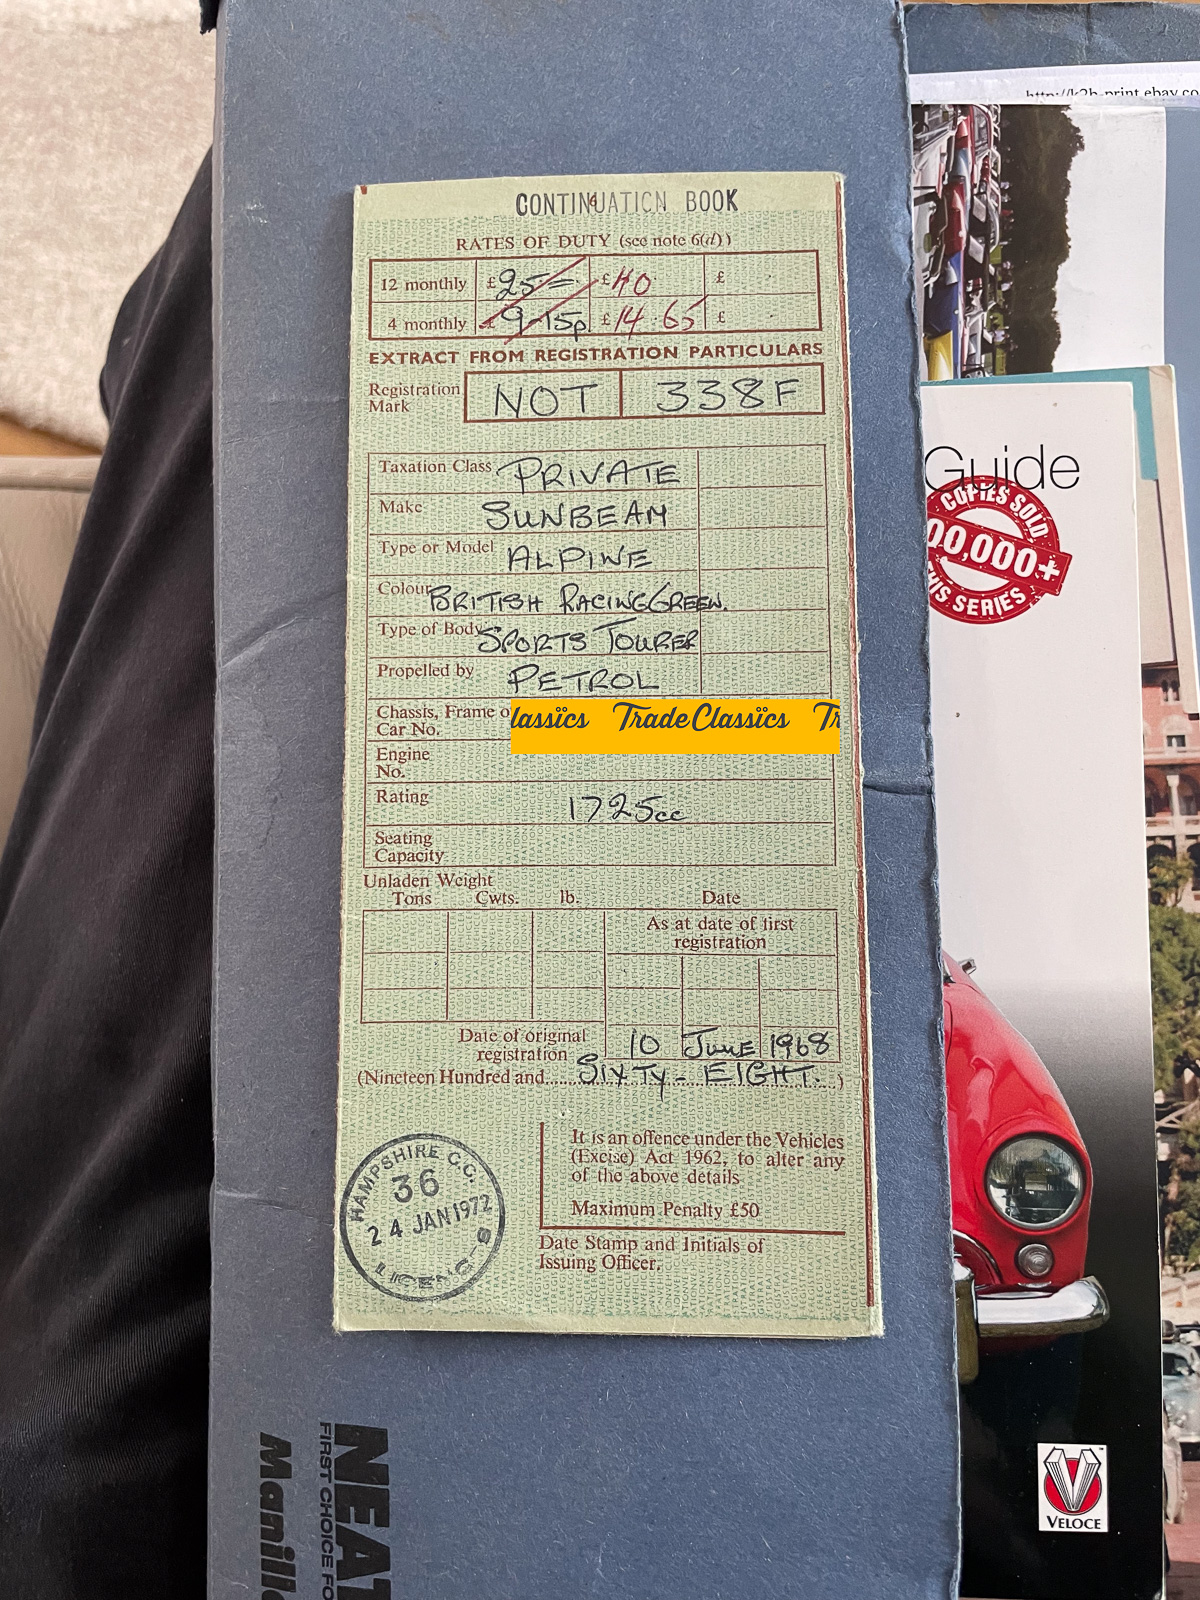 CONTINUATION BOOK
RATES OF DUTY (see note 6(d))
12 monthly £25/= £40 £
4 monthly £9.15p £14.65 £
EXTRACT FROM REGISTRATION PARTICULARS
Registration Mark NOT 338F
Taxation Class PRIVATE
Make SUNBEAM
Type or Model ALPINE
Colour BRITISH RACING GREEN.
Type of Body SPORTS TOURER
Propelled by PETROL
Chassis, Frame o
Car No.
lassics TradeClassics Tr
Engine
No.
Rating 1725cc
Seating
Capacity
Unladen Weight
Tons Cwts. lb. Date
As at date of first
registration
Date of original
registration 10 JUNE 1968
(Nineteen Hundred and SIXTY-EIGHT.)
It is an offence under the Vehicles
(Excise) Act 1962, to alter any
of the above details
Maximum Penalty £50
Date Stamp and Initials of
Issuing Officer.
HAMPSHIRE C.C.
36
24 JAN 1972
LICENC
NEAT
FIRST CHOICE FO
Manill
http://k2b-print.ebay.co
Guide
COPIES SOLD
00,000+
THIS SERIES
VELOCE